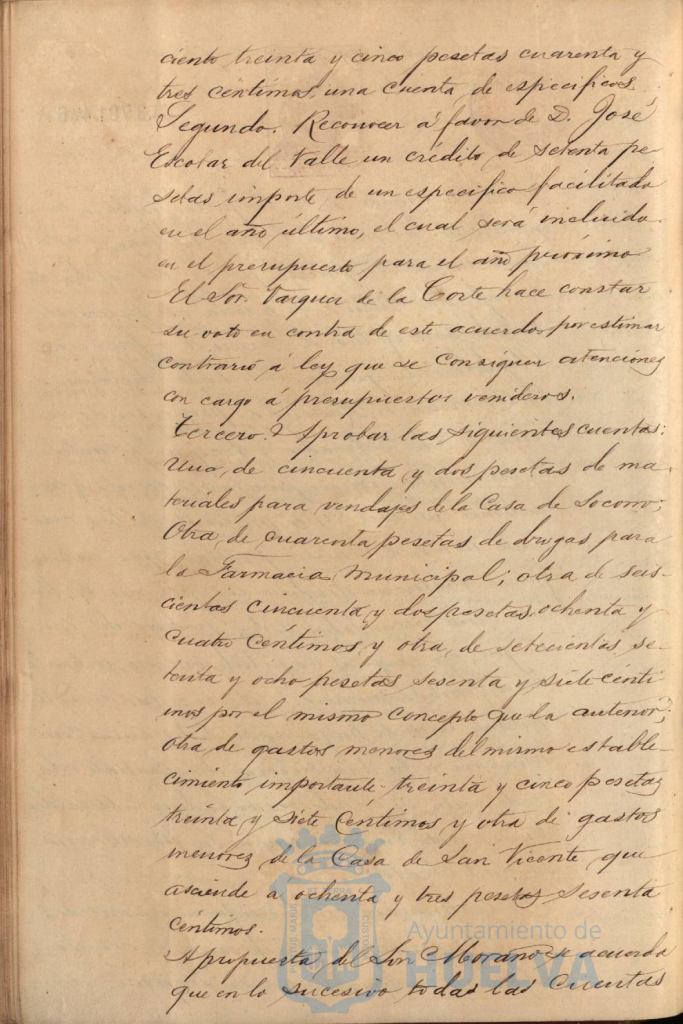 ciento treinta y cinco pesetas cuarenta y
tres centimos, una cuenta, de especificos.
Segundo. Reconocer á favor de D. José
Escolar del Valle un crédito, de setenta pe
setas importe, de un especifico facilitado
en el año último, el cual será incluido
en el presupuesto para el año próximo
El Sor. Vazquez de la Corte hace constar
su voto en contra de este acuerdo, por estimar
contrario á ley que se consignen atenciones
con cargo á presupuestos venideros.
Tercero. Aprobar las siguientes cuentas:
Una, de cincuenta y dos pesetas de ma-
teriales para vendajes de la Casa de Socorro;
Otra, de cuarenta pesetas de drogas para
la Farmacia Municipal; otra de seis-
cientas cincuenta y dos pesetas, ochenta y
cuatro céntimos y otra, de setecientas se-
tenta y ocho pesetas sesenta y siete cénti
mos por el mismo concepto que la anterior;
otra de gastos menores del mismo estable-
cimiento importante treinta y cinco pesetas
treinta y siete céntimos y otra de gastos
menores de la Casa de San Vicente que
asciende a ochenta y tres pesetas sesenta
céntimos.
A propuesta del Sor Morano se acuerda
que en lo sucesivo todas las cuentas
Ayuntamiento de
HUELVA